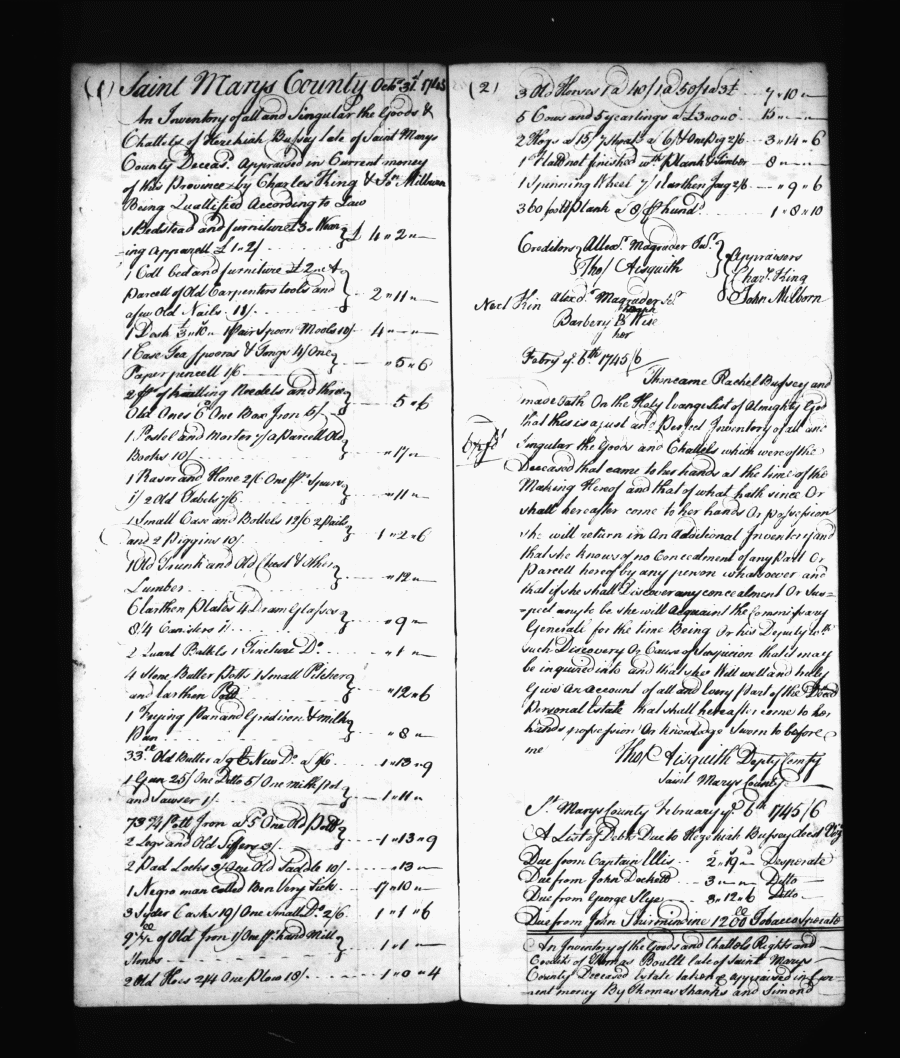 (1) Saint Marys County Octr. 31st. 1745
An Inventory of all and Singular the Goods &
Chattels of Hezekiah Bussey late of Saint Marys
County Deceasd. Appraised in Current money
of this Province by Charles King & Jon. Milburn
Being Quallified According to Law
1 Bedstead and furniture £3 Wear-
ing apparell £1"2/ £4"2"—
1 Coll bed and furniture £2 &
parcell of Old Carpenters tools and
a few Old Nails 11/ 2"11"—
1 Desk 1 pair Spoon Moolds 10/ 4"—"—
1 Case Tea spoons & Tongs 4/ One
Paper pencell 1/6 "5"6
2 of knitting Needels and three
Old Ones 6d One Box Iron 5/ 5"6
1 Pestel and Morter 7/ a parcell Old
Books 10/ "17"—
1 Rasor and Hone 2/6 One pr. Spurs
1/ 2 Old Tables 7/6 "11"—
1 Small Case and Bottels 12/6 2 pails
and 2 Piggins 10/ 1"2"6
1 Old Trunk and Old Chest & other
Lumber "12"—
Earthen plates 4 Dram Glasses
8/ 4 Canisters 1/ "9"—
2 Quart Bottels 1 Tincture Do. "1"—
4 Stone Butter Potts 1 Small Pitcher
and Earthen Pott "12"6
1 Frying Pan and Gridiron & milk
Pan "8"—
33 Old Butter a 9d New Do. a 1"13"9
1 Gun 25/ One Ditto 5/ One milk pot
and Sawser 1/ 1"11"—
73¾ Pott Iron a 5d One Old Pott
2 Legs and Old Siffers 3/ 1"13"9
2 Pad Locks 3/ One Old Saddle 10/ "13"—
1 Negro man called Ben Very Sick 17"10"—
3 Syder Casks 19/ One Small Do. 2/6 1"1"6
of Old Iron 1/ One pr. hand Mill
Stones 1"1"—
2 Old Hoes 2/4 One Plow 18/ 1"0"4
(2) 3 Old Horses 1 a 40/ 1 a 50/ 1 a 3£ 7"10"—
5 Cows and 5 yearlings a £3"0"0 15"—"—
2 Hogs a 15/ 7 Shoats a 6/ One Pig 2/6 3"14"6
1 Flatt not finished wth. Plank & Timber 8"—"—
1 Spinning Wheel 7/ 1 Earthen Jug 2/6 "9"6
360 foot Plank a 8/ pr. hund. 1"8"10
Creditors Allexr. Magruder Junr. Appraisors
Thos Aisquith Charl. King
John Milborn
Next Kin Alexdr. Magruder
Barbery B Wise
her
Febry ye. 6th. 1745/6
Then came Rachel Bussey and
made Oath On the Holy Evangelist of Almighty God
that this is a just and Perfect Inventory of all and
Singular the Goods and Chattels which were of the
Deceased that came to her hands at the time of the
Making Hereof and that of what hath since Or
shall hereafter come to her hands Or possession
she will return in An additional Inventory and
that she knows of no Concealment of any Part Or
Parcell hereof by any person whatsoever and
that if she shall Discover any concealment Or Sus-
pect any to be she will acquaint the Commissary
Generall for the time Being Or his Deputy with
such Discovery Or Cause of Suspicion that it may
be inquired into and that she Will well and truly
Give An account of all and Every Part of the Decd
Personal Estate that shall hereafter come to her
hands possession Or knowledge Sworn to before
me
Thos Aisquith Depty Comty
Saint Marys County
St. Marys County February ye. 6th 1745/6
A List of Debts Due to Hezekiah Bussey decd Viz
Due from Captain Ellis 2"19"— Desperate
Due from John Dockett 3"—"— Ditto
Due from George Slye 3"12"6 Ditto
Due from John 1200 Tobacco sperate
An Inventory of the Goods and Chattels Rights and
Credits of Thomas Boullt late of Saint Marys
County Deceased Estate taken & appraised in Cur-
rent money By Thomas Shanks and Simond